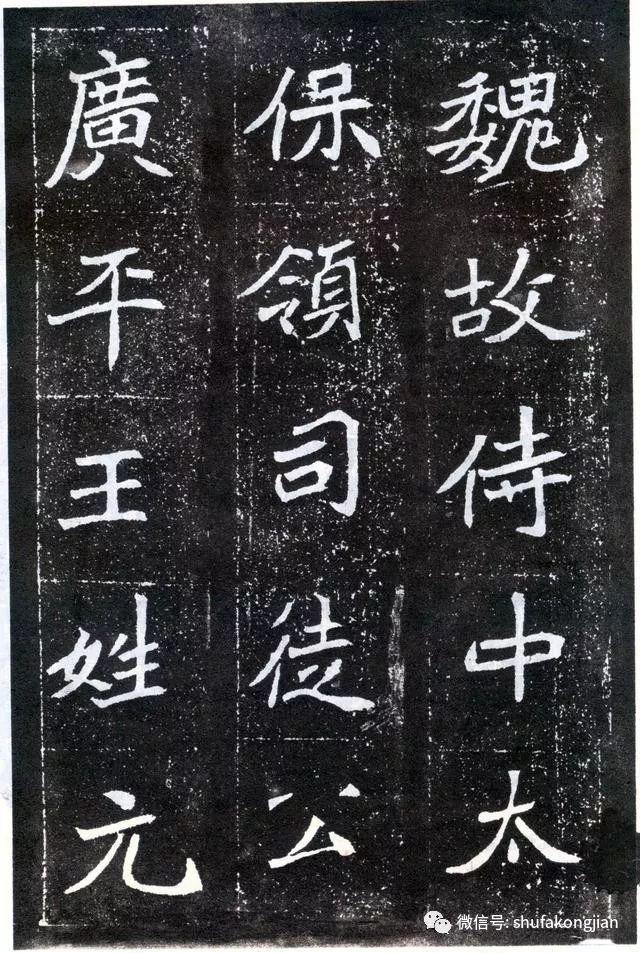 魏故侍中太
保領司徒公
廣平王姓元
微信号: shufakongjian